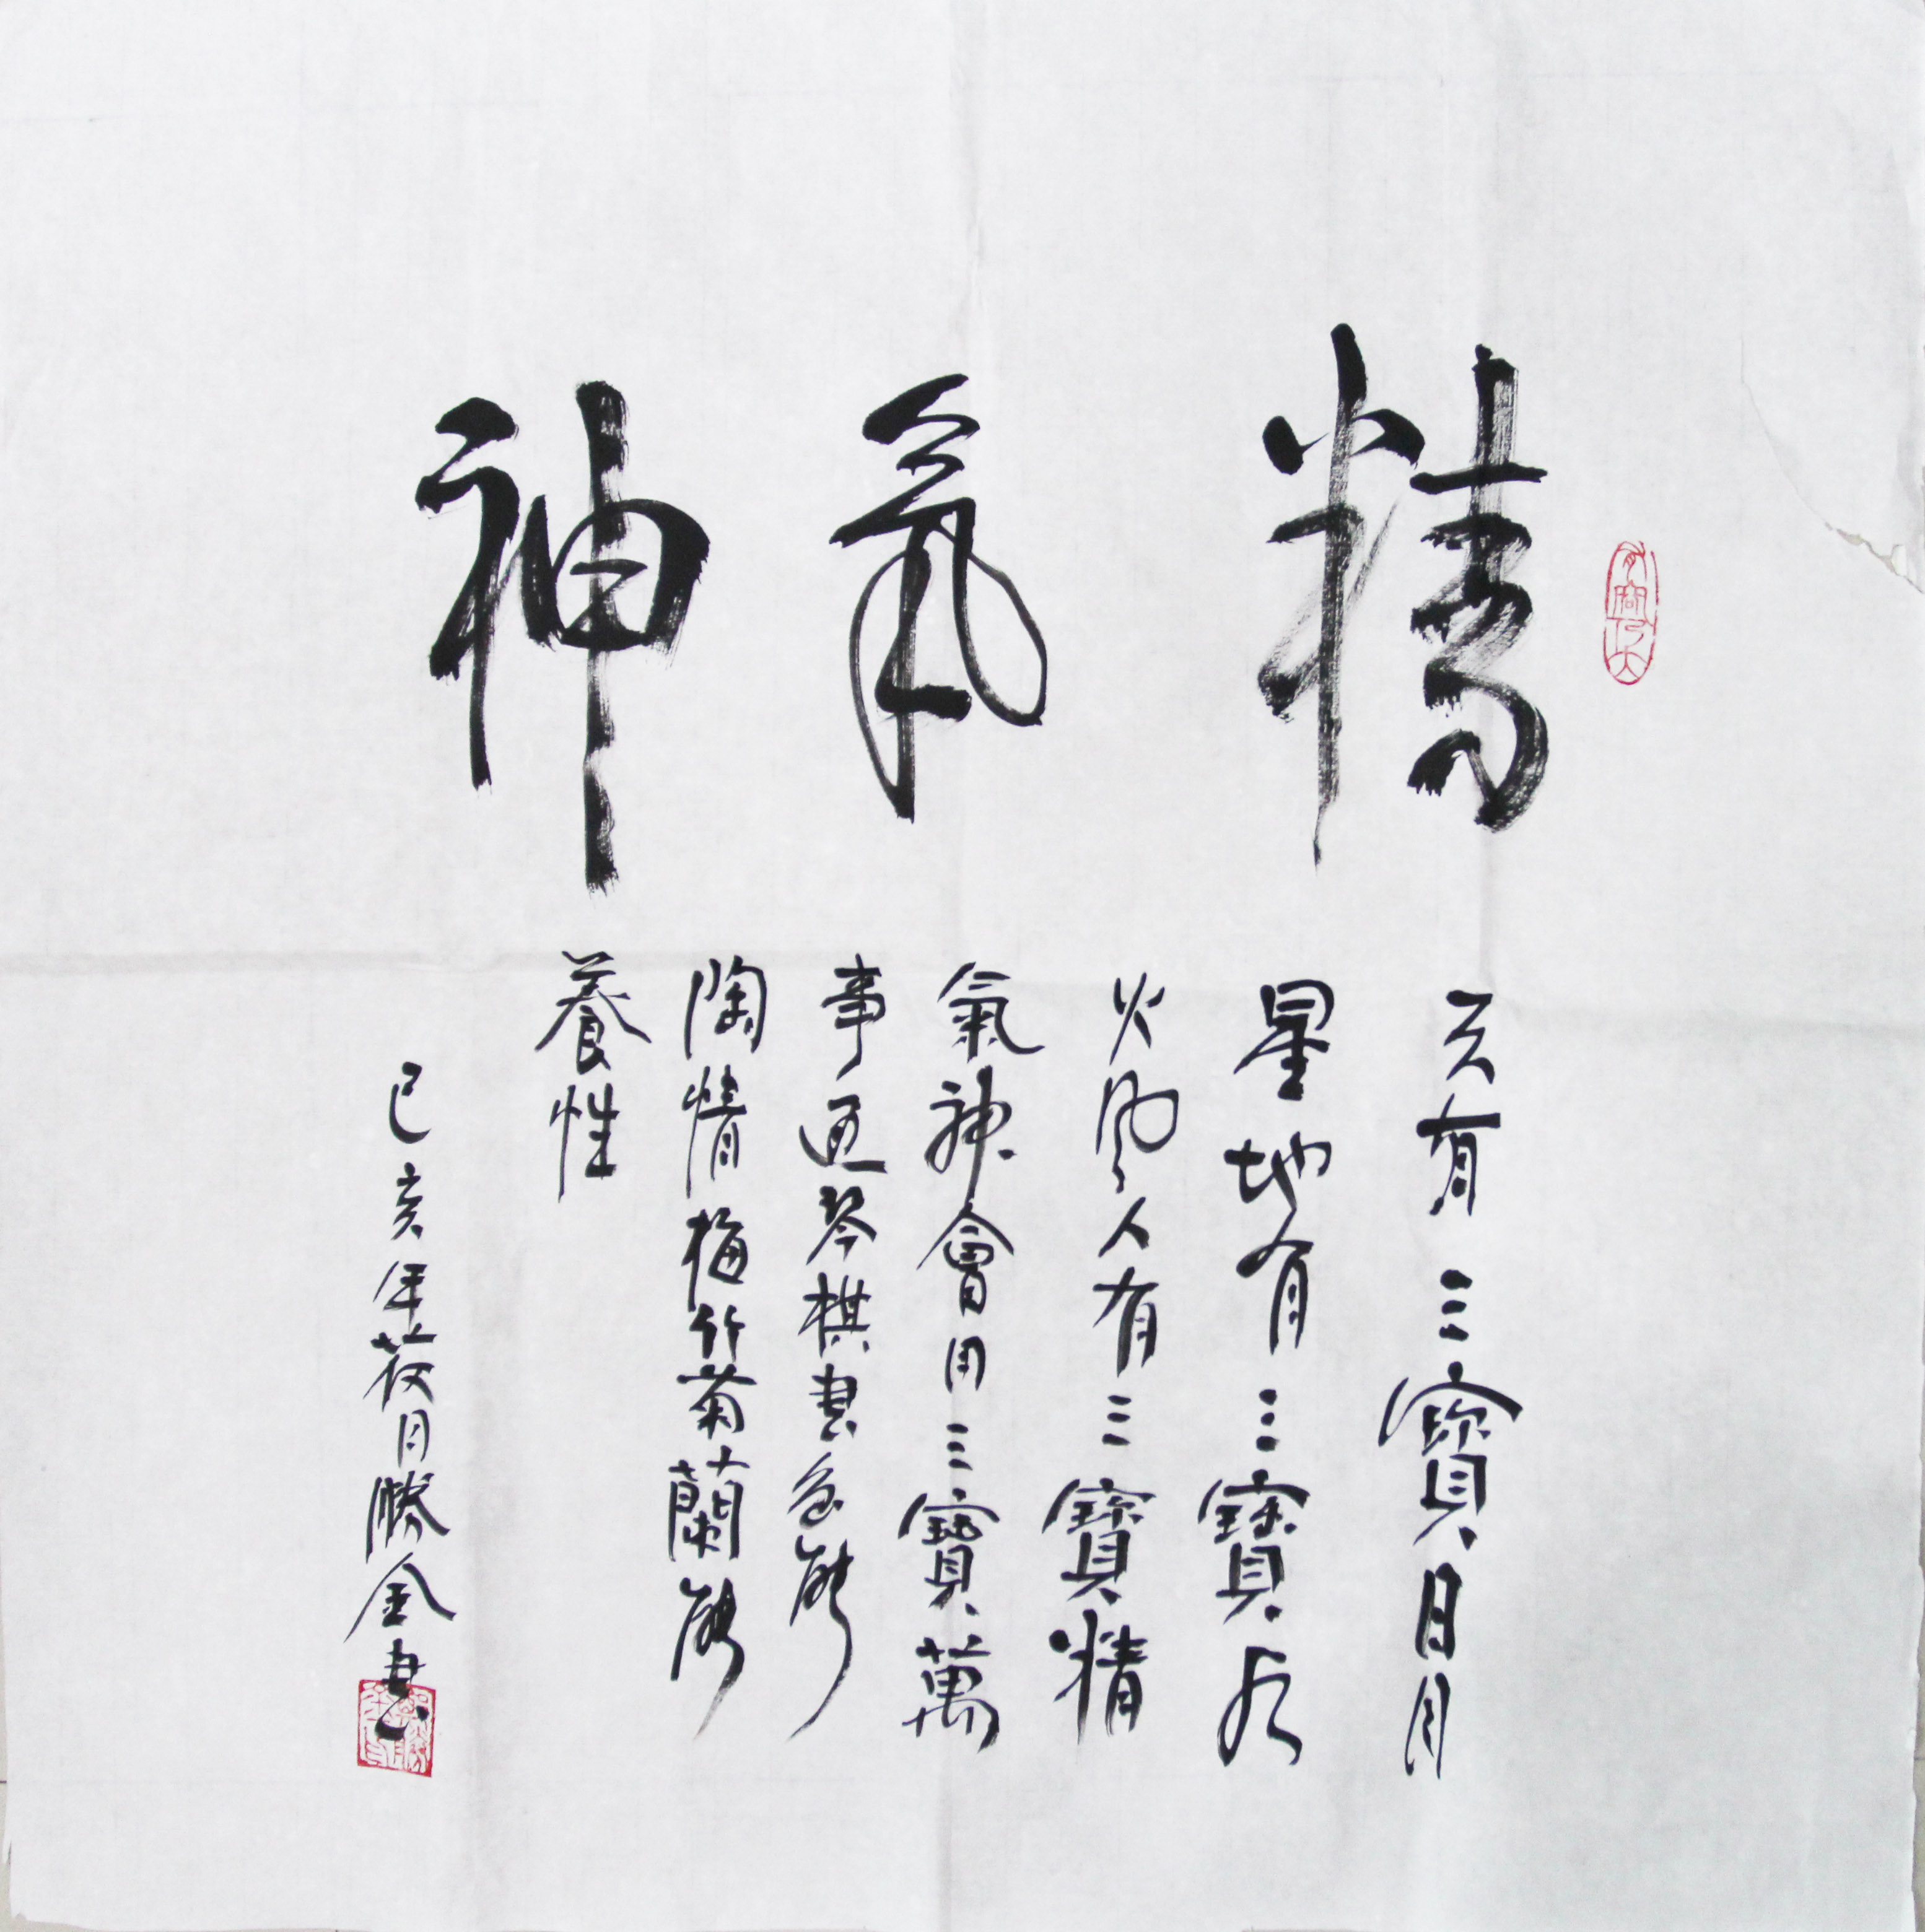 精氣神
有容乃大
天有三寶日月
星地有三寶水
火風人有三寶精
氣神會用三寶萬
事通琴棋書畫能
陶情梅竹菊蘭能
養性
己亥年月勝金書